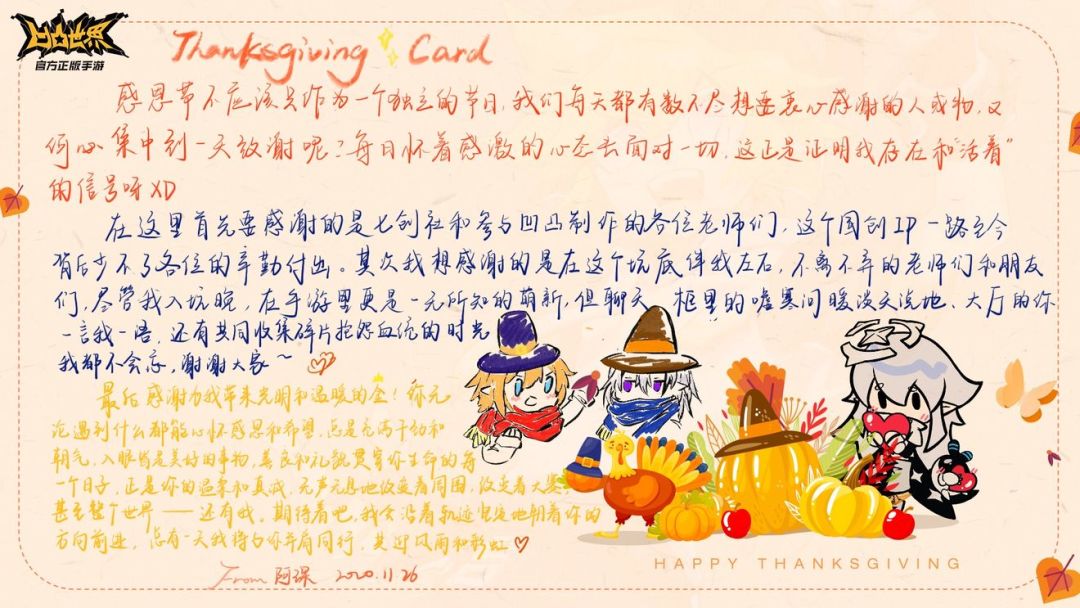 凹凸世界
官方正版手游
Thanksgiving Card
感恩节不应该只作为一个独立的节日,我们每天都有数不尽想要衷心感谢的人或物,又
何必集中到一天致谢呢?每日怀着感激的心态去面对一切,这正是证明我存在和“活着”
的信号呀XD
在这里首先要感谢的是七创社和参与凹凸制作的各位老师们,这个国创IP一路至今
背后少不了各位的辛勤付出。其次我想感谢的是在这个坑底伴我左右,不离不弃的老师们和朋友
们,尽管我入坑晚,在手游里更是一无所知的萌新,但聊天框里的嘘寒问暖谈天说地、大厅的你
一言我一语,还有共同收集碎片抱怨血统的时光
我都不会忘,谢谢大家~
最后感谢为我带来光明和温暖的金!你无
论遇到什么都能心怀感恩和希望,总是充满干劲和
朝气,入眼皆是美好的事物,善良和礼貌贯穿你生命的每
一个日子,正是你的温柔和真诚,无声无息地改变着周围,改变着大赛,
甚至整个世界——还有我。期待着吧,我会沿着轨迹坚定地朝着你的
方向前进,总有一天我将与你并肩同行,共迎风雨和彩虹
From 阿琛 2020.11.26
HAPPY THANKSGIVING